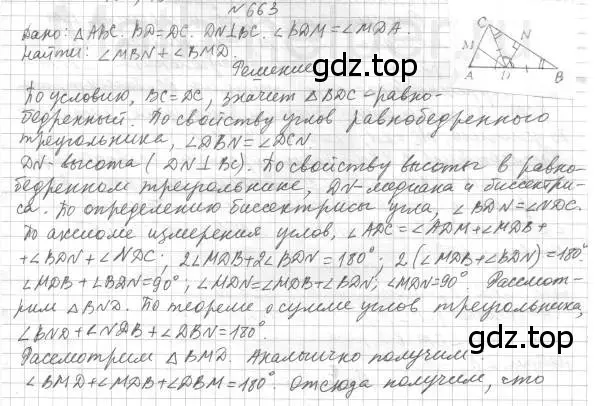 №663
Дано: △ABC. BD=DC. DN⊥BC. ∠BDM=∠MDA.
Найти: ∠MBN+∠BMD.
Решение
C
M
N
A
D
B
По условию, BC=DC, значит △BDC - равно-
бедренный. По свойству углов равнобедренного
треугольника, ∠DBN=∠DCN.
DN - высота (DN⊥BC). По свойству высоты в равно-
бедренном треугольнике, DN - медиана и биссектри-
са. По определению биссектрисы угла, ∠BDN=∠NDC.
По аксиоме измерения углов, ∠ADC=∠ADM+∠MDB+
+∠BDN+∠NDC; 2∠MDB+2∠BDN=180°; 2(∠MDB+∠BDN)=180°
∠MDB+∠BDN=90°, ∠MDN=∠MDB+∠BDN; ∠MDN=90°. Рассмот-
рим △BND. По теореме о сумме углов треугольника,
∠BND+∠NDB+∠DBN=180°
Рассмотрим △BMD. Аналогично получим
∠BMD+∠MDB+∠DBM=180°. Отсюда получим, что
gdz.top
gdz.top
gdz.top